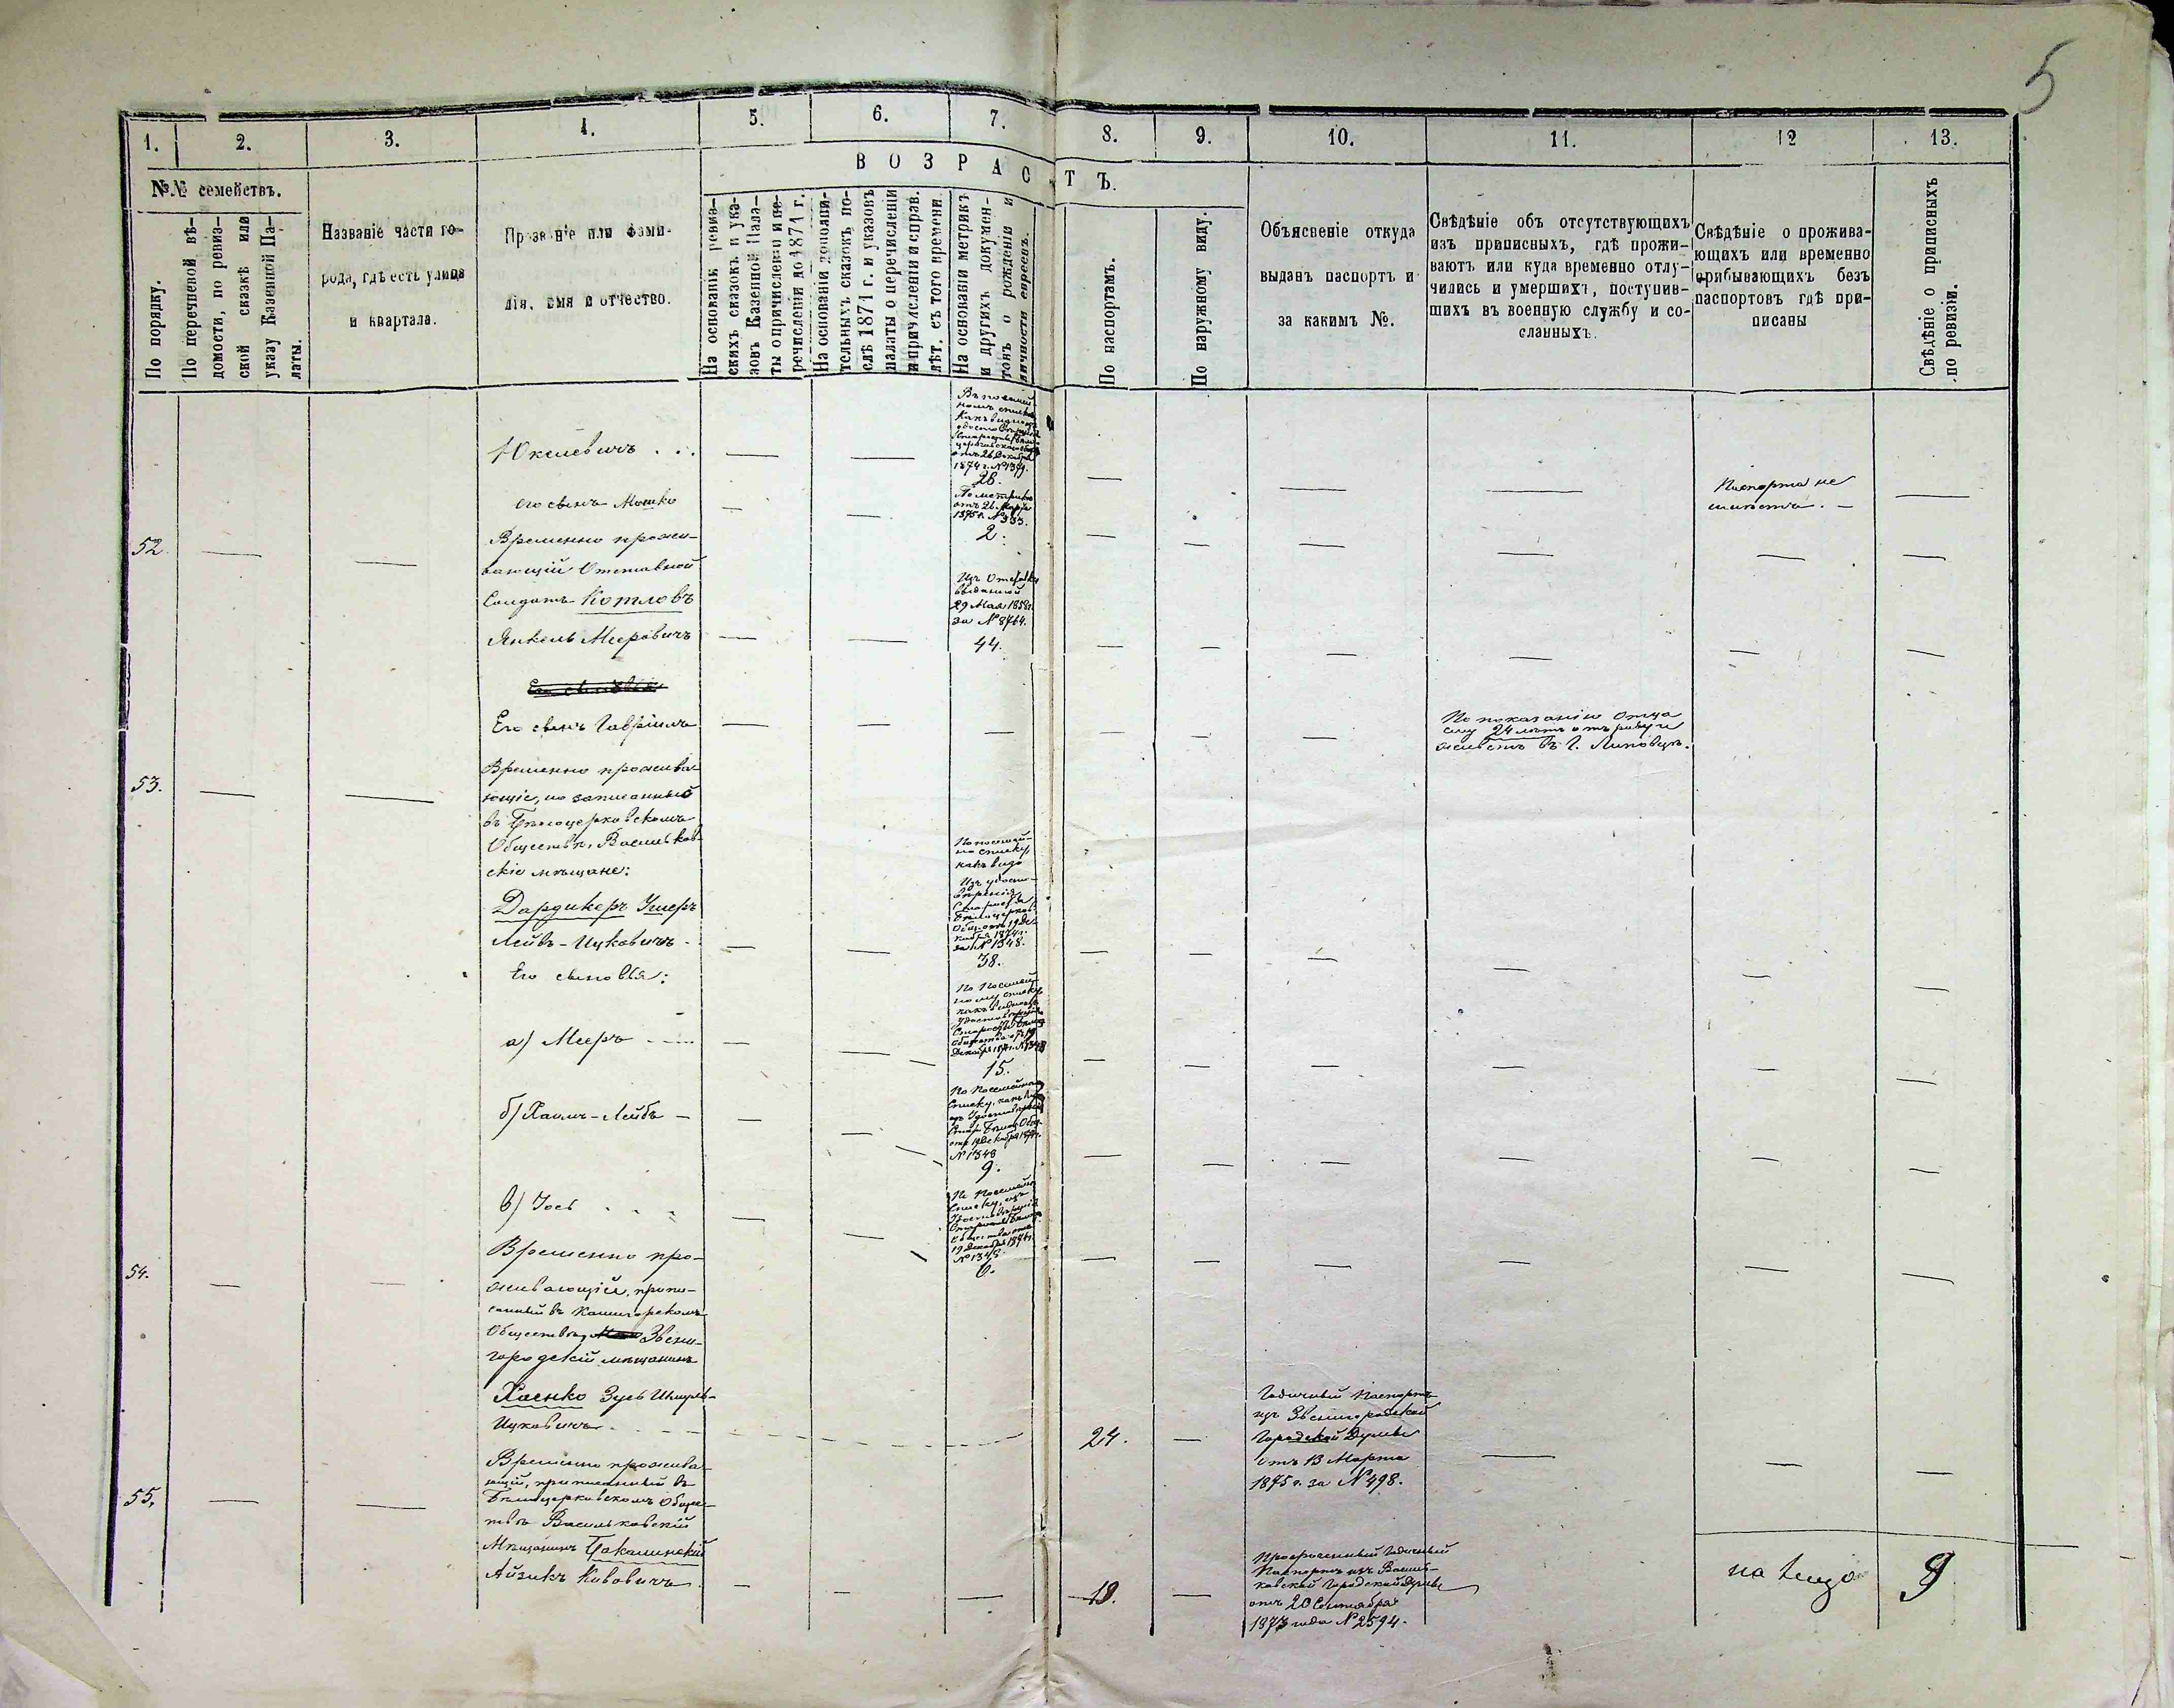 5
1.
2.
3.
4.
5.
6.
7.
8.
9.
10.
11.
12
13.
ВОЗРАСТЪ.
№№ семействъ.
По порядку.
По перечневой вѣ-
домости, по ревиз-
ской сказкѣ или
указу Казенной Па-
латы.
Названіе части го-
рода, гдѣ есть улица
и квартала.
Прозваніе или фами-
лія, имя и отчество.
На основаніи ревиз-
скихъ сказокъ и ука-
зовъ Казенной Пала-
ты о причисленіи и пе-
речисленіи до 1871 г.
На основаніи дополни-
тельныхъ сказокъ по-
слѣ 1871 г. и указовъ
палаты о перечисленіи
и причисленіи и справ.
лѣт. съ того времени.
На основаніи метрикъ
и другихъ докумен-
товъ о рожденіи и
личности евреевъ.
По паспортамъ.
По наружному виду.
Объясненіе откуда
выданъ паспортъ и
за какимъ №.
Свѣдѣніе объ отсутствующихъ
изъ приписныхъ, гдѣ прожи-
ваютъ или куда временно отлу-
чились и умершихъ, поступив-
шихъ въ военную службу и со-
сланныхъ.
Свѣдѣніе о прожива-
ющихъ или временно
прибывающихъ безъ
паспортовъ гдѣ при-
писаны
Свѣдѣніе о приписныхъ
по ревизіи.
Юкелевичъ . . .
26 Декабря
1874 г. №
28.
Паспорта не
имѣетъ. —
его сынъ Мошко
По метрикѣ
отъ 26 Марта
1875 г. № 333.
2.
52
Временно прожи-
вающій Отставной
Солдатъ Котловъ
Янкель Мееровичъ
Изъ Отставки
выданной
29 Мая 1858 г.
за № 8764.
44.
Его сыновья
Его сынъ Гавріилъ
По показанію отца
ему 24 лѣтъ отъ роду и
живетъ въ г. Липовцѣ.
53.
Временно прожива-
ющіе, но записанный
въ Бѣлоцерковскомъ
Обществѣ, Васильков-
скіе мѣщане:
Дардикеръ Ушеръ
Лейбъ-Ицковичъ
списку
какъ видно
Изъ удосто-
вѣренія
Старосты
Бѣлоцерков.
Общ. отъ 19 Де-
кабря 1874 г.
за № 1348.
38.
Его сыновья:
а) Мееръ - ....
По Посемей-
ному списку
какъ видно изъ
удостовѣренія
Старосты
Общества отъ 19
Декабря 1874 г. № 1348
15.
б) Хаимъ-Лейбъ —
По Посемейному
Списку, какъ
отъ 19 Декабря 1874 г.
№ 1348
9.
в) Іось . . .
По Посемейн.
Списку, изъ
Удостовѣренія
Общества отъ
19 Декабря 1874 г.
№ 1348.
6.
54.
Временно про-
живающій, припи-
санный въ
Обществѣ, Звени-
городскій мѣщанинъ
Хаенко Зусь Шмуль-
Ицковичъ
24.
Годичный Паспортъ
изъ Звенигородской
Городской Думы
отъ 13 Марта
1875 г. за № 498.
55.
Временно прожива-
ющій, приписанный въ
Бѣлоцерковскомъ Общес-
твѣ Васильковскій
Мѣщанинъ
Айзикъ
19.
Просроченный Годичный
Паспортъ изъ Василь-
ковской Городской Думы
отъ 20 Сентября
1873 года № 2594.
на лицо
9